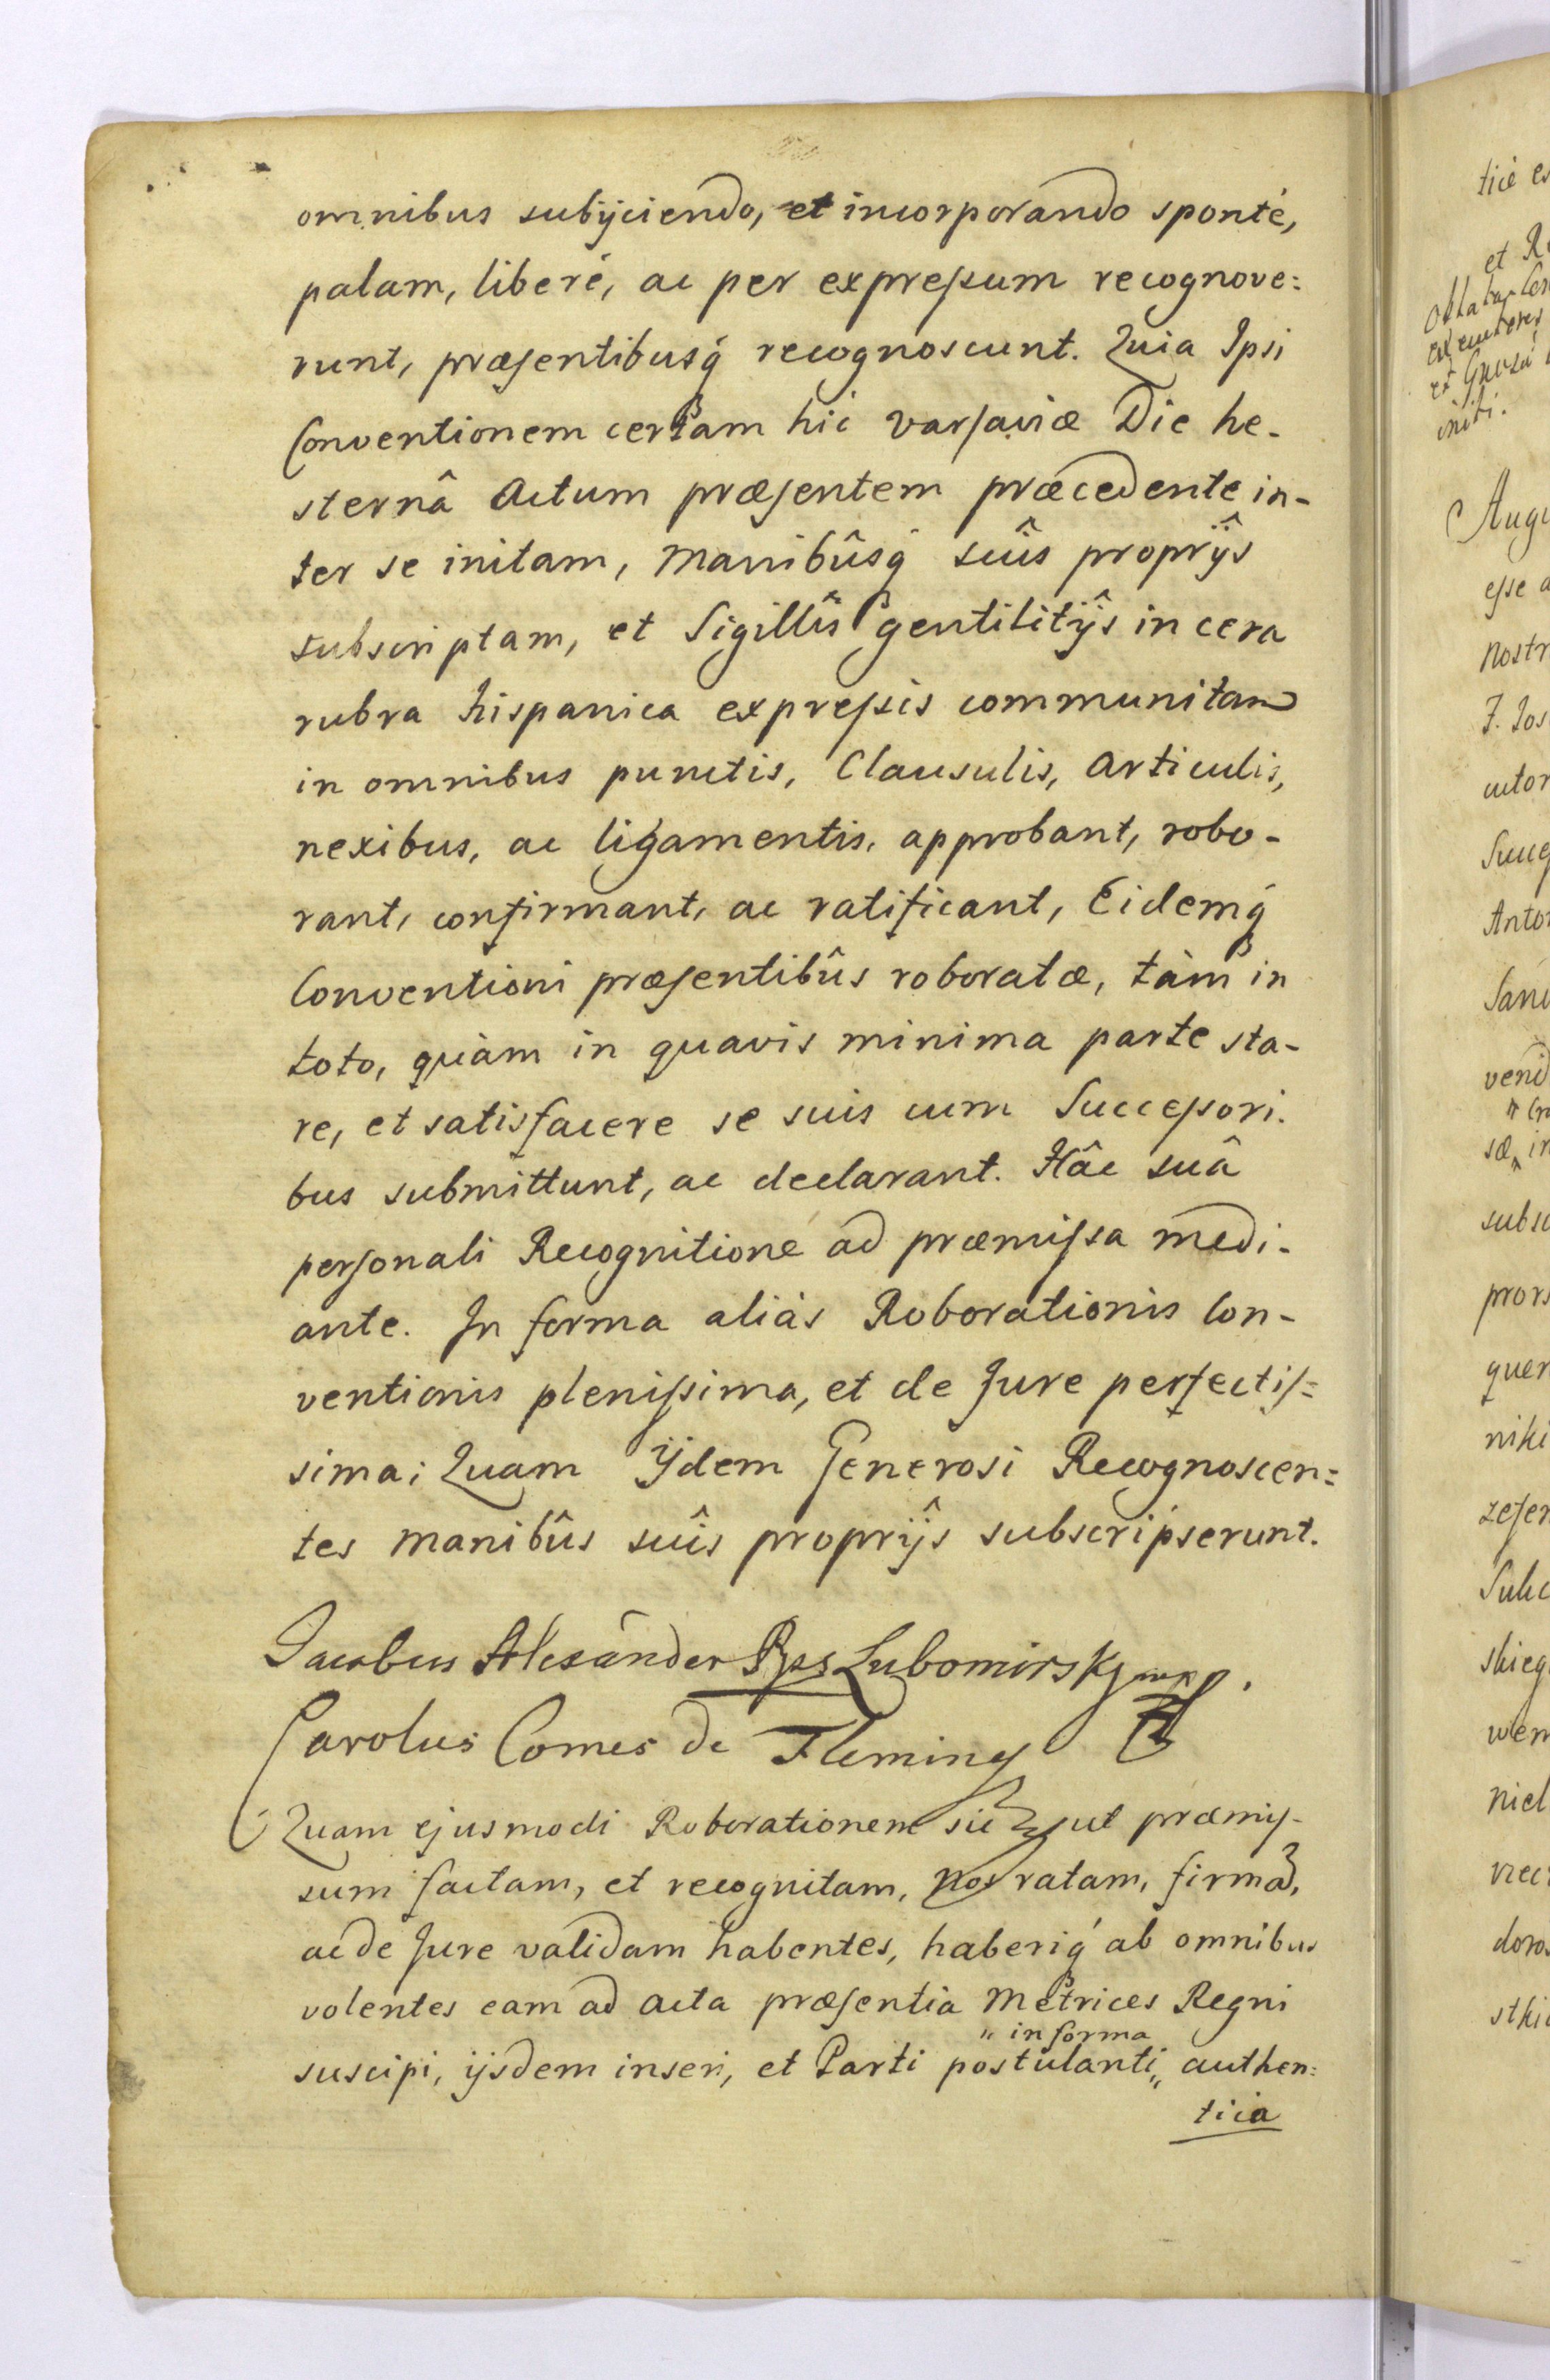 omnibus subÿciendo, et incorporando sponté,
palam, liberé, ac per expreſsum recognove:
runt, præsentibusq́ recognoscunt. Quia Ipsi
Conventionem certam hic Varsaviæ Die he-
sternâ Actum præsentem præcedente in-
ter se initam, Manibûsq́ suîs proprÿ̂s
subscriptam, et Sigillîs gentilitÿ̂s in cera
rubra hispanica expreſsis communitam
in omnibus punctis, Clausulis, Articulis,
nexibus, ac ligamentis, approbant, robo-
rant, confirmant, ac ratificant, Eidemq́
Conventioni præsentibûs roboratæ, tàm in
toto, quàm in quavis minima parte sta-
re, et satisfacere se suis cum Succeſsori-
bus submittunt, ac declarant. Hâc suâ
personali Recognitione ad præmiſsa medi-
ante. In forma aliàs Roborationis Con-
ventionis pleniſsima, et de Jure perfectiſ=
sima; Quam Ÿdem Generosi Recognoscen=
tes Manibûs suîs proprÿ̂s subscripserunt.
Jacobus Alexánder Lubomirsky mp.
Carolus Comes de Fleming
Quam ejusmodi Roborationem sic ut præmiſ-
sum factam, et recognitam, Nos ratam, firmã,
ac de Jure validam habentes, haberiq́ ab omnibus
volentes eam ad Acta præsentia Metrices Regni
" in forma
suscipi, ÿsdem inseri, et Parti postulanti „ authen=
tica
tiè
et
oblatæ
initi.
Augu
eſse a
nostr
J. Jos
cutor
Succ
Anto
vend
sæ in
subsc
prors
quer
niki
zeſer
skieg
wem
niel
doro